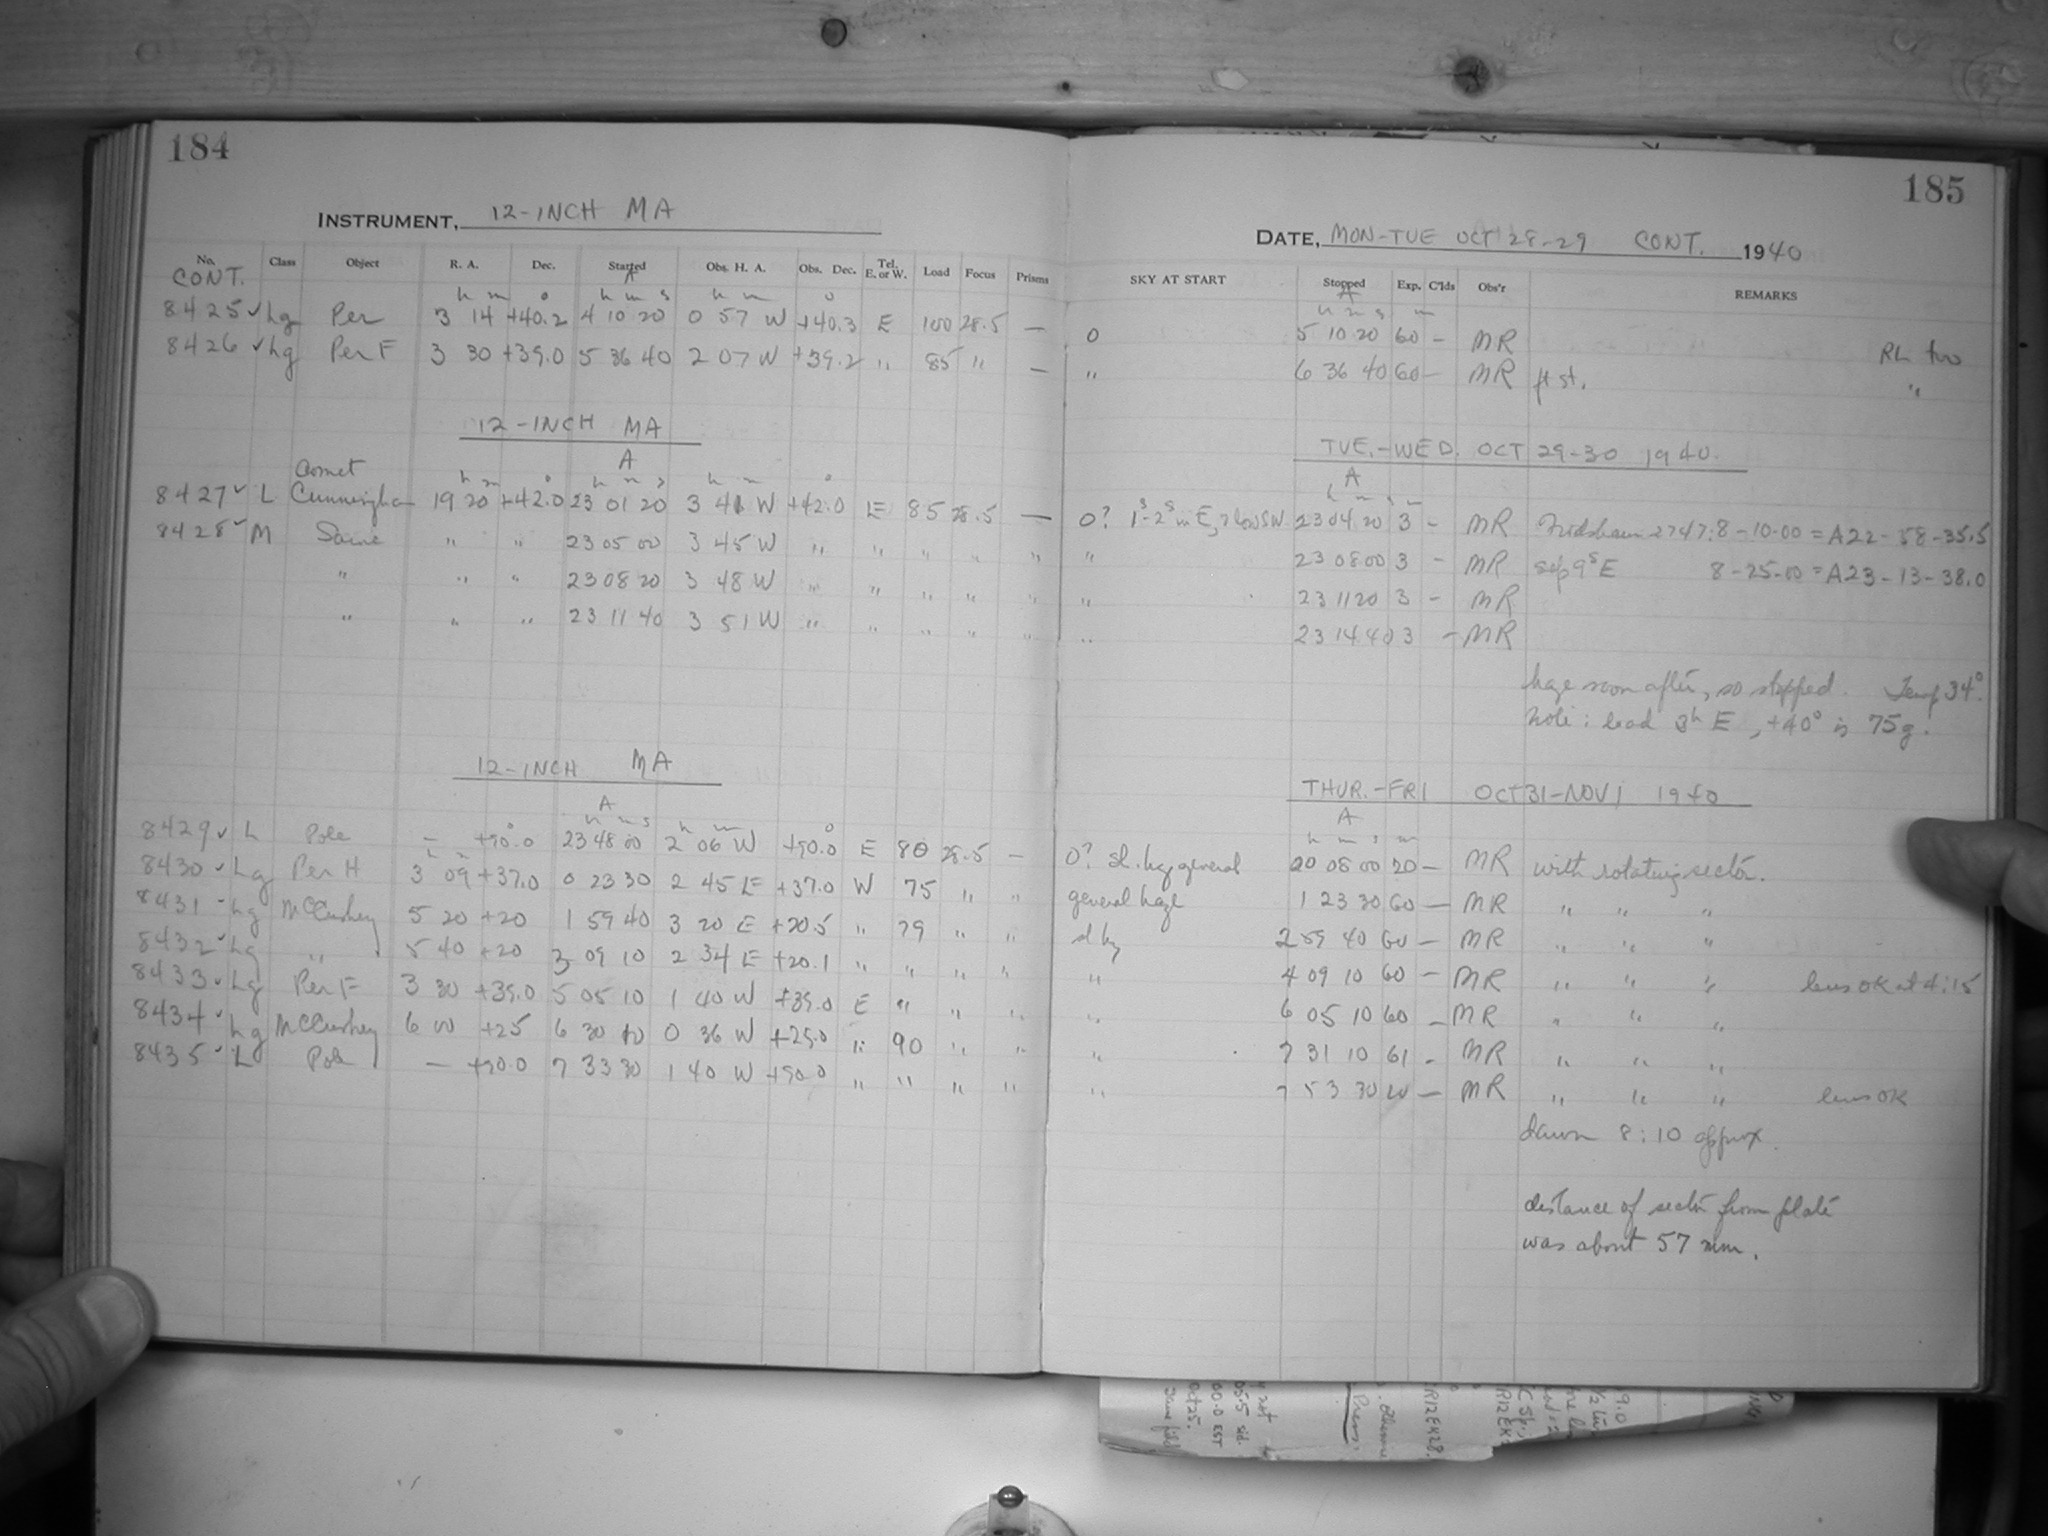 184
INSTRUMENT, 12-INCH MA
No. Class Object R. A. Dec. Started Obs. H. A. Obs. Dec. Tel. E. or W. Load Focus Prisms
CONT. A
h m ° h m s h m °
8425 ✓ hg Per 3 14 +40.2 4 10 20 0 57 W +40.3 E 100 28.5 —
8426 ✓ hg Per F 3 30 +39.0 5 36 40 2 07 W +39.2 " 85 " —
12-INCH MA
A
Comet h m ° h m s h m °
8427 ✓ L Cunningham 19 20 +42.0 23 01 20 3 41 W +42.0 E 85 28.5 —
8428 ✓ M Same " " 23 05 00 3 45 W " " " " "
" " " 23 08 20 3 48 W " " " " "
" " " 23 11 40 3 51 W " " " " "
12-INCH MA
A
h m s h m °
8429 ✓ L Pole — +90.0 23 48 00 2 06 W +90.0 E 80 28.5 —
8430 ✓ hg Per H 3 09 +37.0 0 23 30 2 45 E +37.0 W 75 " "
8431 ✓ hg McCuskey 5 20 +20 1 59 40 3 20 E +20.5 " 79 " "
8432 ✓ hg " 5 40 +20 3 09 10 2 34 E +20.1 " " " "
8433 ✓ hg Per F 3 30 +39.0 5 05 10 1 40 W +39.0 E " " "
8434 ✓ hg McCuskey 6 00 +25 6 30 10 0 36 W +25.0 " 90 " "
8435 ✓ L Pole — +90.0 7 33 30 1 40 W +90.0 " " " "
185
DATE, MON-TUE OCT 28-29 CONT. 1940
SKY AT START Stopped Exp. C'lds Obs'r REMARKS
A
h m s m
0 5 10 20 60 — MR RL two
" 6 36 40 60 — MR ft st. "
TUE.-WED. OCT 29-30 1940.
A
h m s m
0? 1s-2s in E, 2 low SW 23 04 20 3 — MR 2747: 8-10-00 = A22-58-35.5
" 23 08 00 3 — MR 9s E 8-25-00 = A23-13-38.0
" 23 11 20 3 — MR
" 23 14 40 3 — MR
haze soon after, so stopped. Temp 34°.
Note: load 3h E, +40° is 75g.
THUR.-FRI OCT 31-NOV 1 1940
A
h m s m
0? sl. hz general 00 08 00 20 — MR with rotating sector.
general haze 1 23 30 60 — MR " " "
sl hz 2 59 40 60 — MR " " "
" 4 09 10 60 — MR " " " lens OK at 4:15
" 6 05 10 60 — MR " " "
" 7 31 10 61 — MR " " "
" 7 53 30 20 — MR " " " lens OK
dawn 8:10 approx.
distance of sector from plate
was about 57 mm.